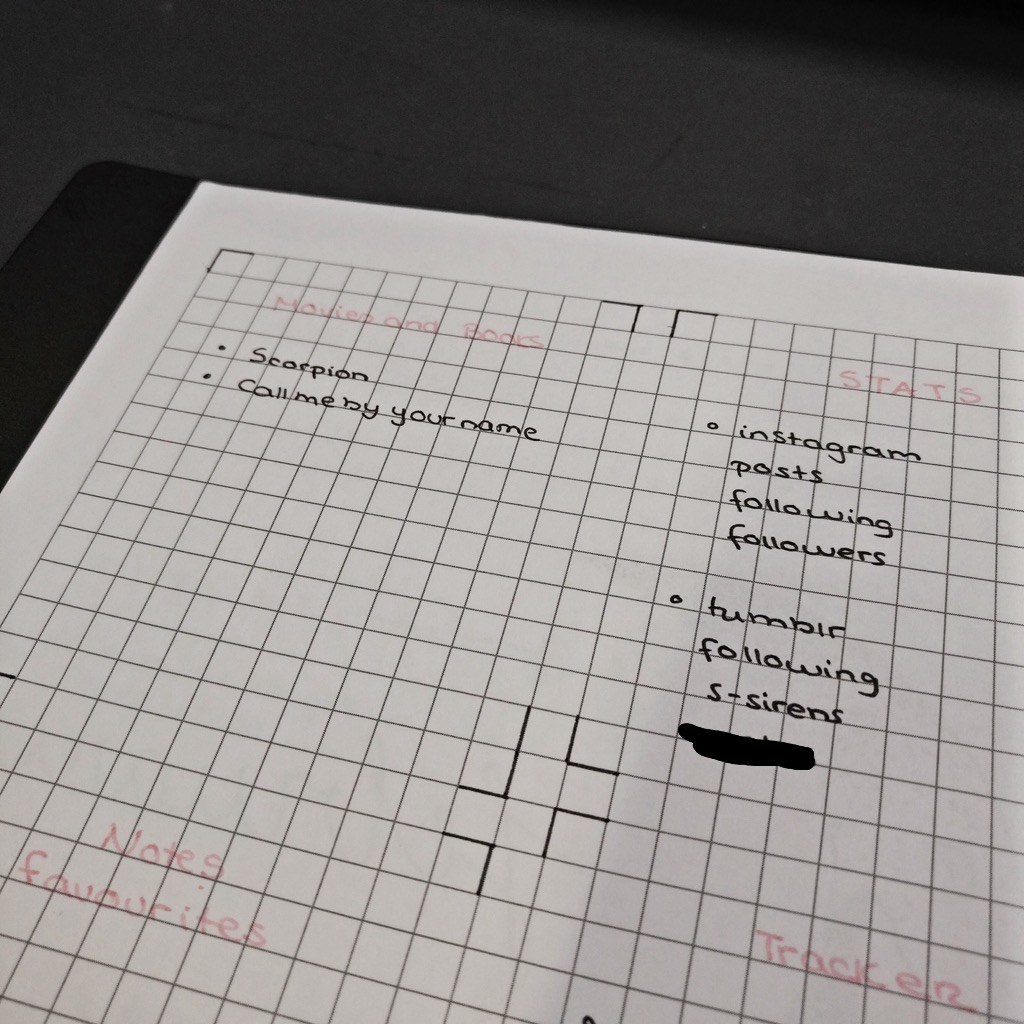 Movies and Books
• Scorpion
• Call me by your name
STATS
• instagram
posts
following
followers
• tumblr
following
s-sirens
Notes
favourites
Tracker